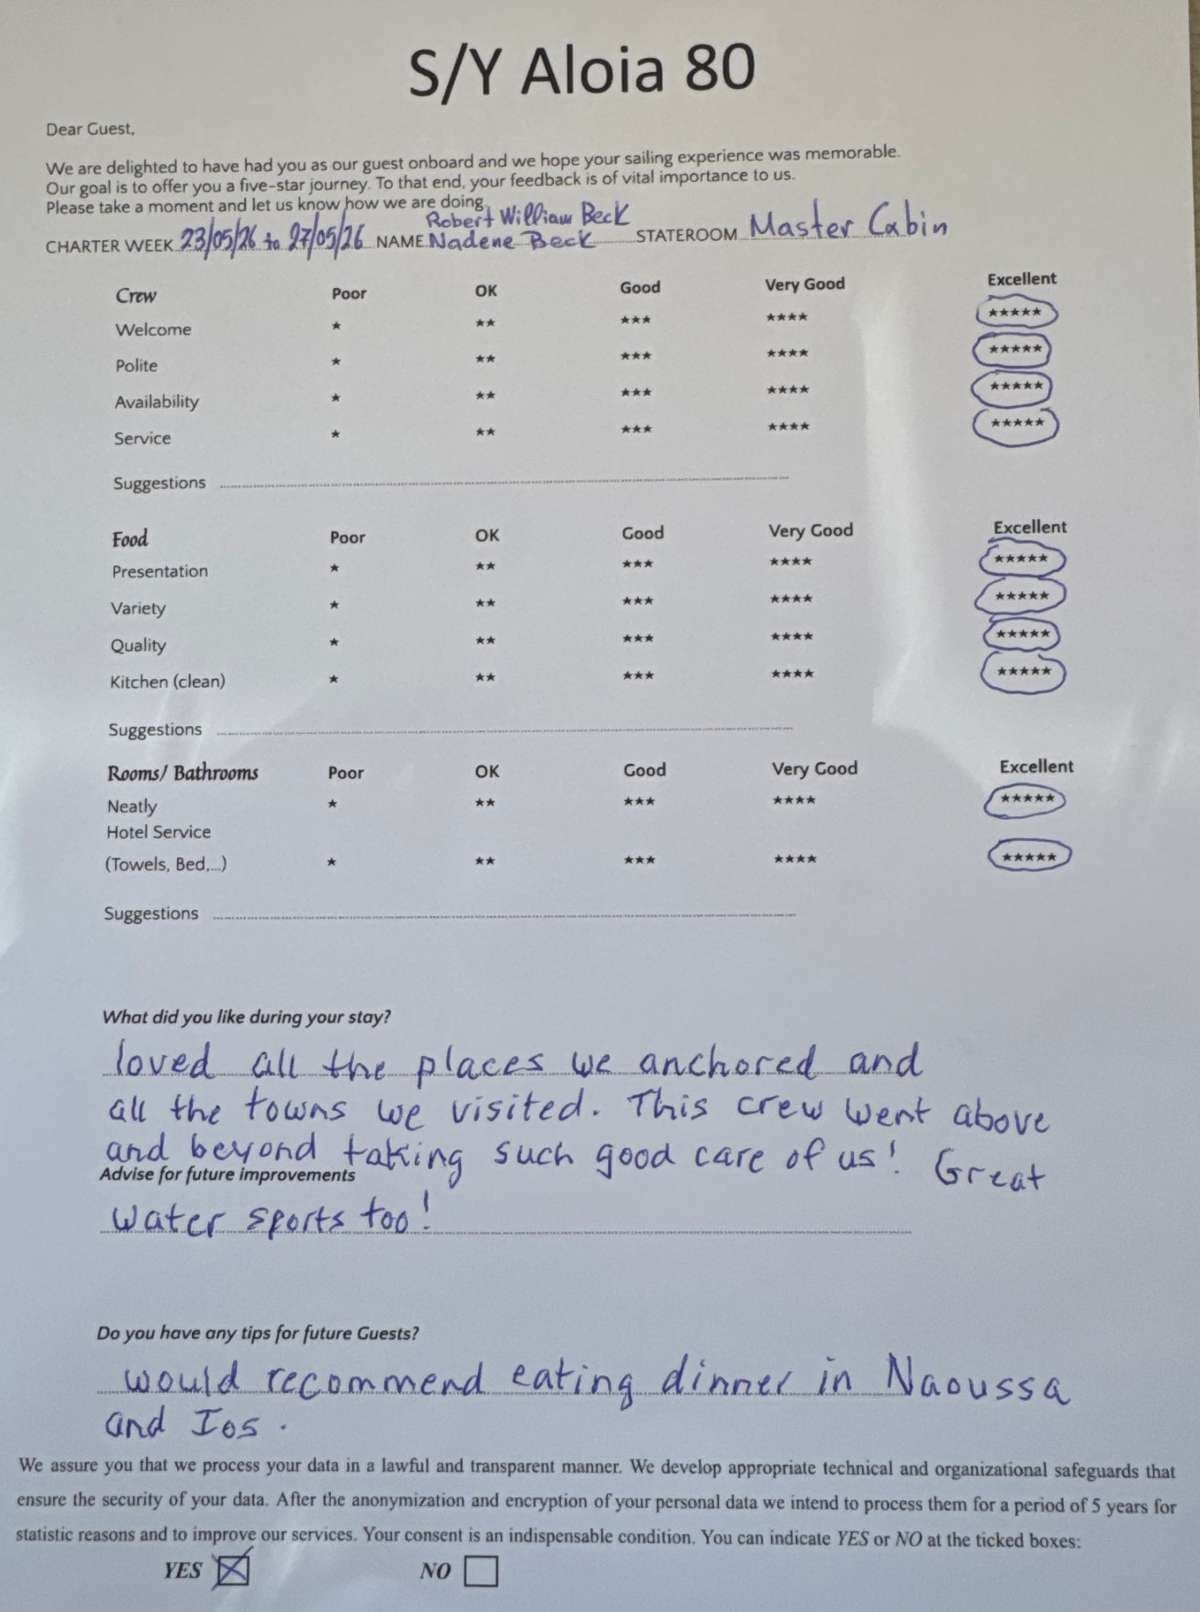 S/Y Aloia 80
Dear Guest,
We are delighted to have had you as our guest onboard and we hope your sailing experience was memorable.
Our goal is to offer you a five-star journey. To that end, your feedback is of vital importance to us.
Please take a moment and let us know how we are doing.
Robert William Beck
CHARTER WEEK 23/05/26 to 27/05/26 NAME Nadene Beck STATEROOM Master Cabin
Crew Poor OK Good Very Good Excellent
Welcome ★ ★★ ★★★ ★★★★ ★★★★★
Polite ★ ★★ ★★★ ★★★★ ★★★★★
Availability ★ ★★ ★★★ ★★★★ ★★★★★
Service ★ ★★ ★★★ ★★★★ ★★★★★
Suggestions
Food Poor OK Good Very Good Excellent
Presentation ★ ★★ ★★★ ★★★★ ★★★★★
Variety ★ ★★ ★★★ ★★★★ ★★★★★
Quality ★ ★★ ★★★ ★★★★ ★★★★★
Kitchen (clean) ★ ★★ ★★★ ★★★★ ★★★★★
Suggestions
Rooms/ Bathrooms Poor OK Good Very Good Excellent
Neatly ★ ★★ ★★★ ★★★★ ★★★★★
Hotel Service
(Towels, Bed,...) ★ ★★ ★★★ ★★★★ ★★★★★
Suggestions
What did you like during your stay?
loved all the places we anchored and
all the towns we visited. This crew went above
and beyond taking such good care of us! Great
Advise for future improvements
water sports too!
Do you have any tips for future Guests?
would recommend eating dinner in Naoussa
and Ios.
We assure you that we process your data in a lawful and transparent manner. We develop appropriate technical and organizational safeguards that
ensure the security of your data. After the anonymization and encryption of your personal data we intend to process them for a period of 5 years for
statistic reasons and to improve our services. Your consent is an indispensable condition. You can indicate YES or NO at the ticked boxes:
YES ☒ NO ☐